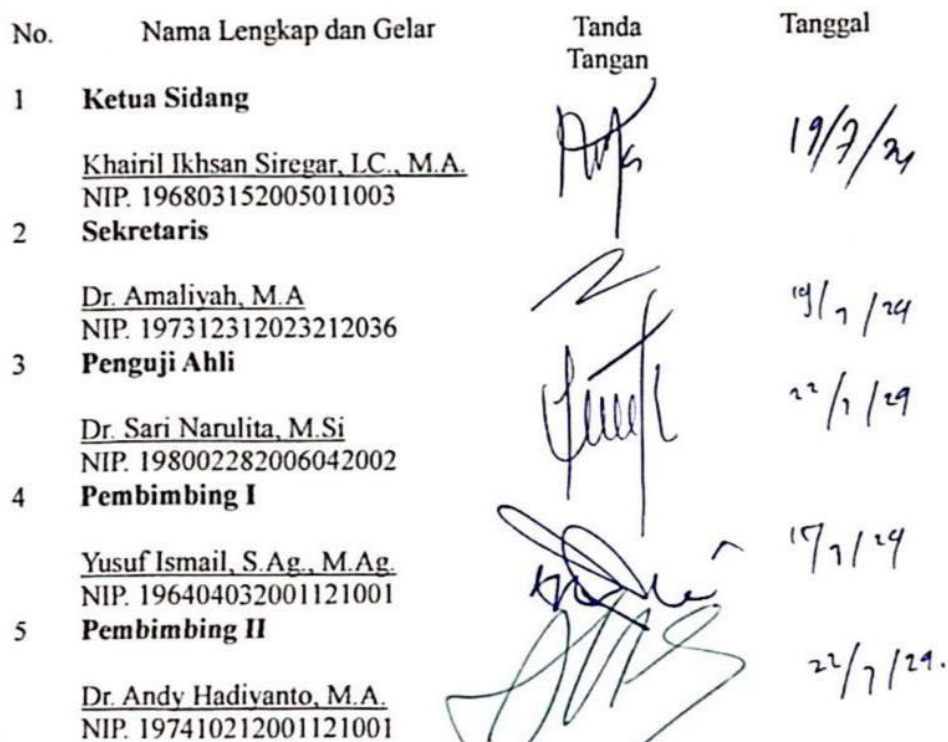 No. Nama Lengkap dan Gelar Tanda Tangan Tanggal
1 Ketua Sidang
Khairil Ikhsan Siregar, LC., M.A. 19/7/24
NIP. 196803152005011003
2 Sekretaris
Dr. Amaliyah, M.A 19/7/24
NIP. 197312312023212036
3 Penguji Ahli
22/7/24
Dr. Sari Narulita, M.Si
NIP. 198002282006042002
4 Pembimbing I
Yusuf Ismail, S.Ag., M.Ag. /7/24
NIP. 196404032001121001
5 Pembimbing II
22/7/24.
Dr. Andy Hadiyanto, M.A.
NIP. 197410212001121001